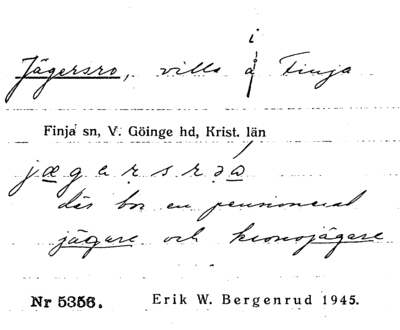 i
Jägersro, villa å Finja
Finja sn, V. Göinge hd, Krist. län
jægersrå
där bor en pensionerad
jägare och kronojägare
Nr 5356. Erik W. Bergenrud 1945.